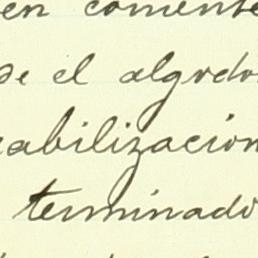 en comente
de el algodo
cabilizacion
terminado